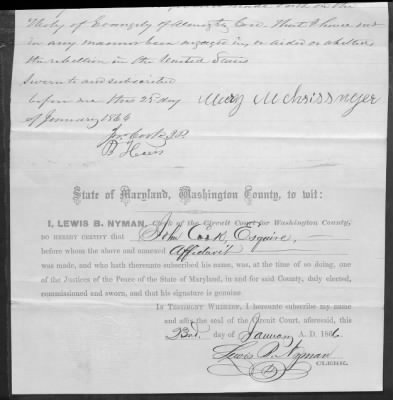 Holy of Evangely of Almighty God. That I have not
in any manner been engaged in, or aided or abetted
the rebellion in the United States
Sworn to and subscribed
before me this 25 day
of January 1866
Mary M Chrissnyer
Jno Cook J.P.
State of Maryland, Washington County, to wit:
I, LEWIS B. NYMAN, Clerk of the Circuit Court for Washington County,
DO HEREBY CERTIFY THAT John Cook, Esquire,
before whom the above and annexed Affidavit
was made, and who hath thereunto subscribed his name, was, at the time of so doing, one
of the Justices of the Peace of the State of Maryland, in and for said County, duly elected,
commissioned and sworn, and that his signature is genuine.
IN TESTIMONY WHEREOF, I hereunto subscribe my name
and affix the seal of the Circuit Court, aforesaid, this
23rd. day of January A. D. 1866.
Lewis B. Nyman
CLERK.